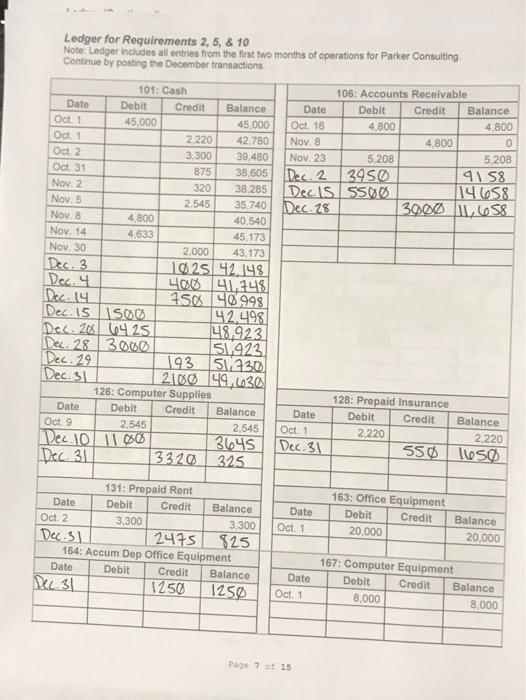 Ledger for Requirements 2, 5, & 10
Note: Ledger includes all entries from the first two months of operations for Parker Consulting.
Continue by posting the December transactions.
101: Cash
Date Debit Credit Balance
Oct. 1 45,000 45,000
Oct. 1 2,220 42,780
Oct. 2 3,300 39,480
Oct. 31 875 38,605
Nov. 2 320 38,285
Nov. 5 2,545 35,740
Nov. 8 4,800 40,540
Nov. 14 4,633 45,173
Nov. 30 2,000 43,173
Dec. 3 1025 42,148
Dec. 4 400 41,748
Dec. 14 750 40998
Dec. 15 1500 42,498
Dec. 20 6425 48,923
Dec. 28 3000 51,923
Dec. 29 193 51,730
Dec. 31 2100 49,630
106: Accounts Receivable
Date Debit Credit Balance
Oct. 16 4,800 4,800
Nov. 8 4,800 0
Nov. 23 5,208 5,208
Dec. 2 3950 9158
Dec. 15 5500 14658
Dec. 28 3000 11,658
126: Computer Supplies
Date Debit Credit Balance
Oct. 9 2,545 2,545
Dec. 10 1100 3645
Dec. 31 3320 325
128: Prepaid Insurance
Date Debit Credit Balance
Oct. 1 2,220 2,220
Dec. 31 550 1650
131: Prepaid Rent
Date Debit Credit Balance
Oct. 2 3,300 3,300
Dec. 31 2475 825
163: Office Equipment
Date Debit Credit Balance
Oct. 1 20,000 20,000
164: Accum Dep Office Equipment
Date Debit Credit Balance
Dec. 31 1250 1250
167: Computer Equipment
Date Debit Credit Balance
Oct. 1 8,000 8,000
Page 7 of 15